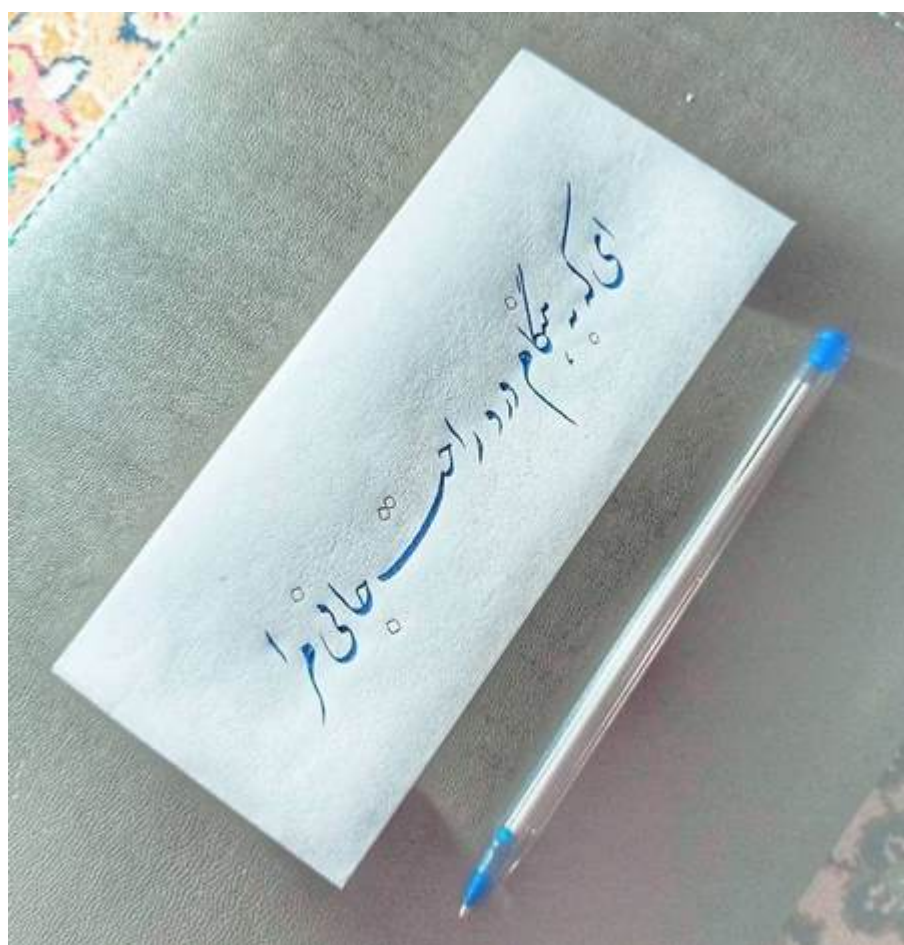 ای که به هنگام درد راحت جانی مرا